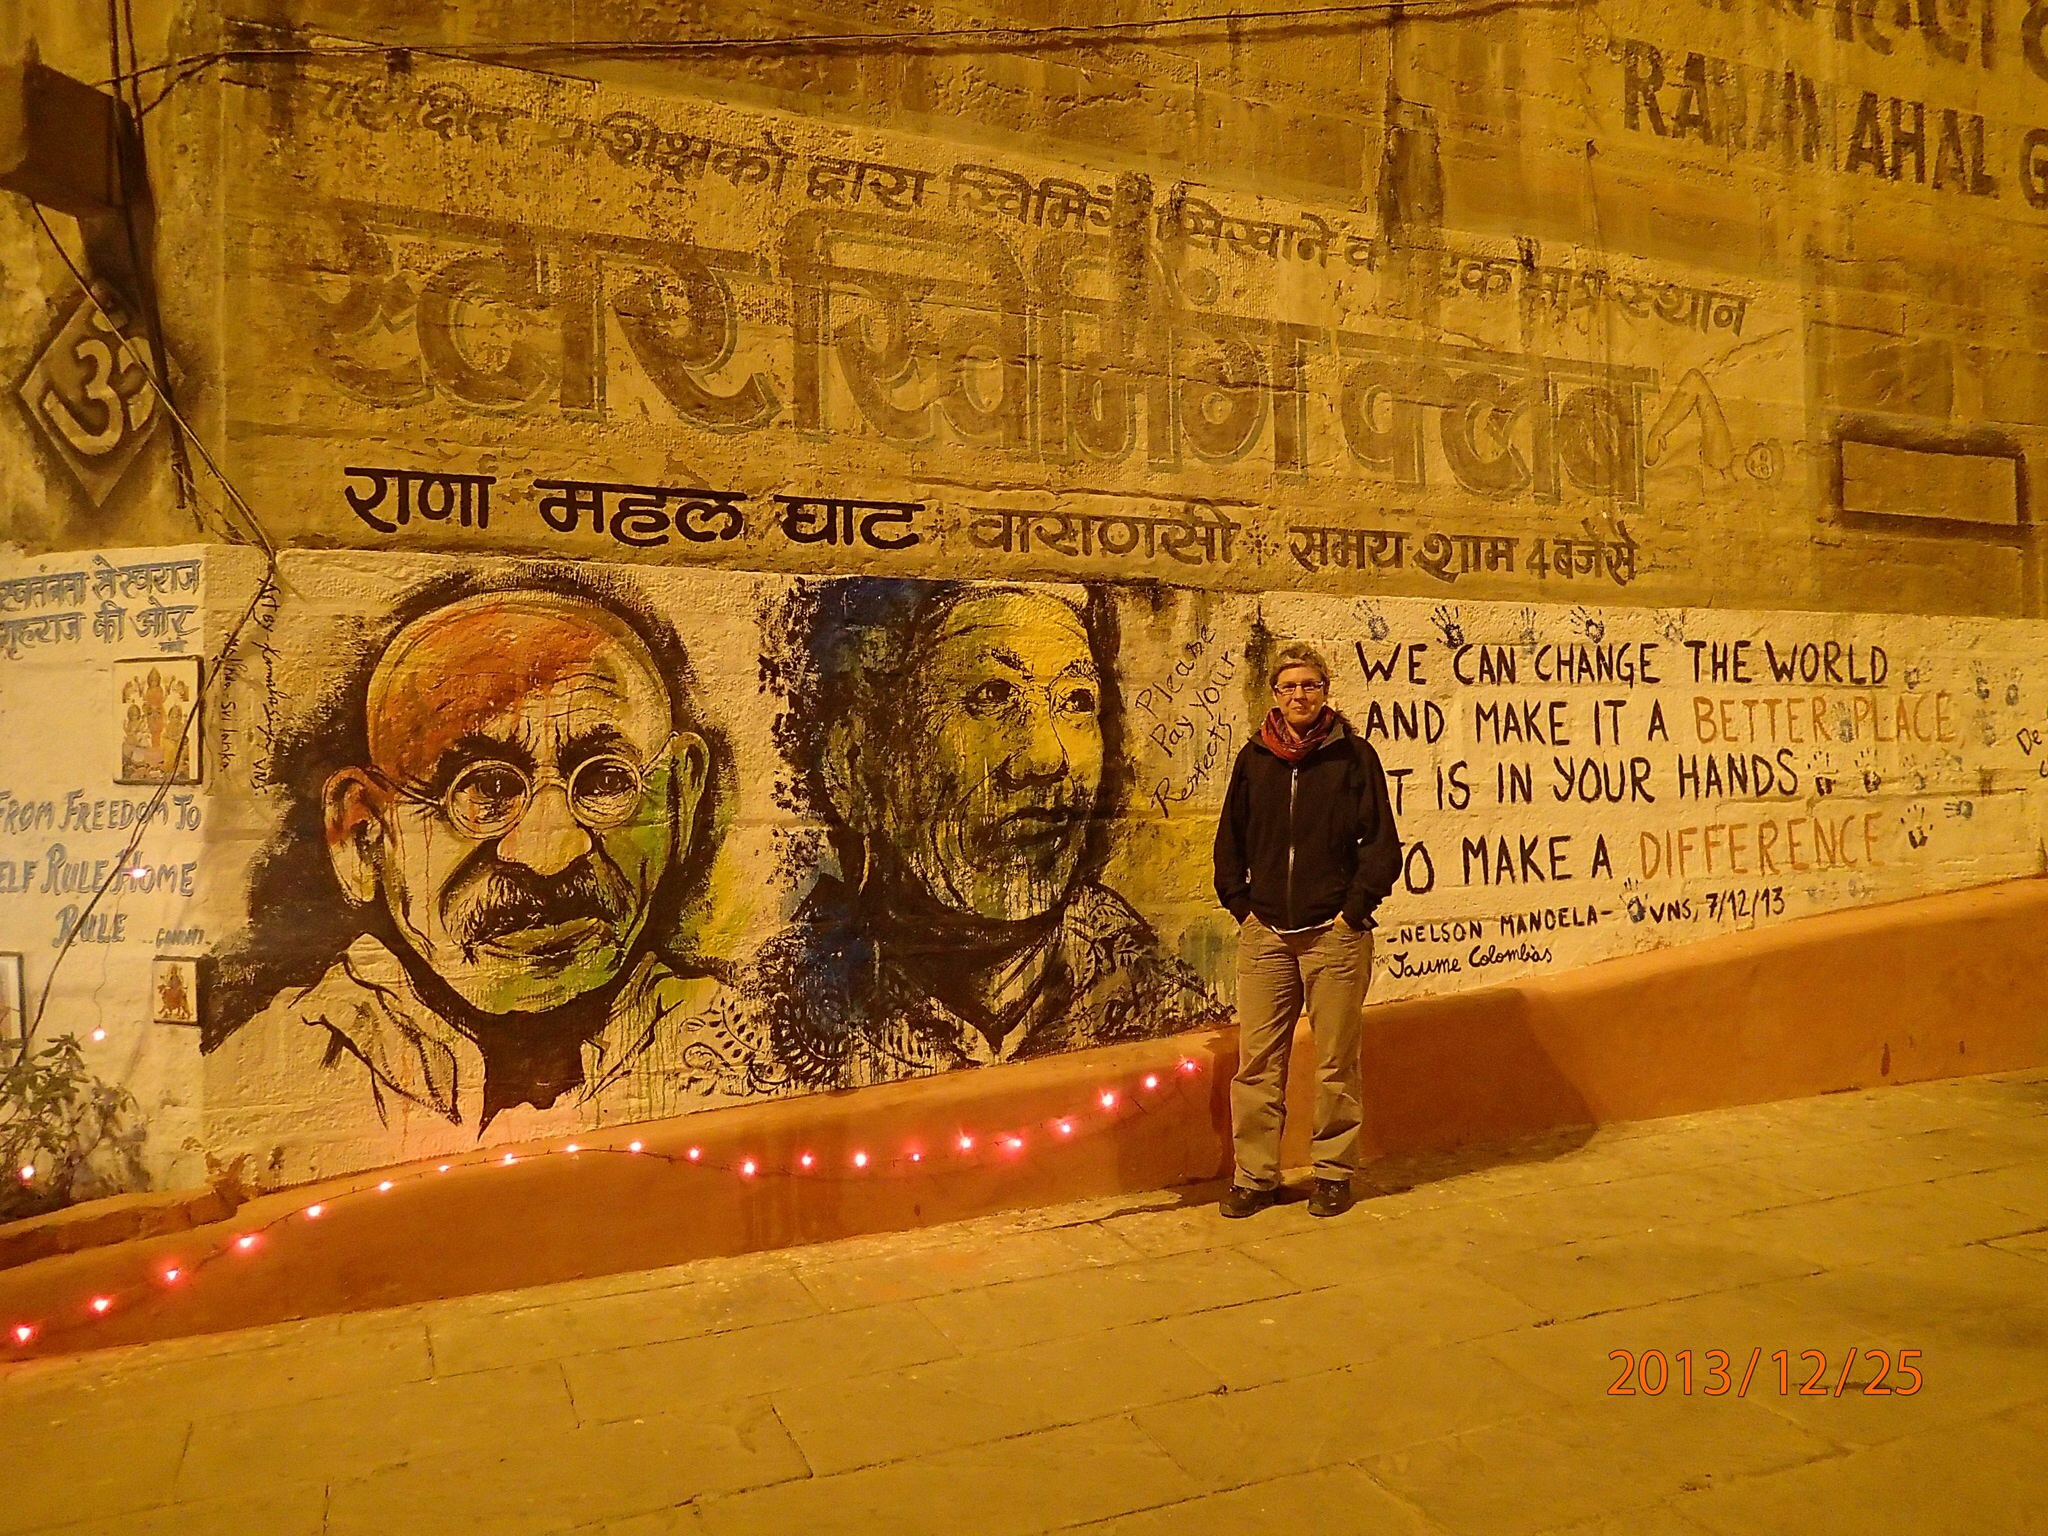 RAJA MAHAL G
प्रशिक्षकों द्वारा स्विमिंग सिखाने का एक मात्र स्थान
स्टार स्विमिंग क्लब
राणा महल घाट * वाराणसी * समय शाम 4 बजे से
ॐ
स्वतंत्रता से स्वराज
गृहराज की ओर
FROM FREEDOM TO
ELF RULE HOME
RULE
GANDHI
Sri lanka
VNS
Please
Pay Your
Respects
WE CAN CHANGE THE WORLD
AND MAKE IT A BETTER PLACE,
T IS IN YOUR HANDS
TO MAKE A DIFFERENCE
-NELSON MANDELA- VNS, 7/12/13
Jaume Colombàs
De
2013/12/25